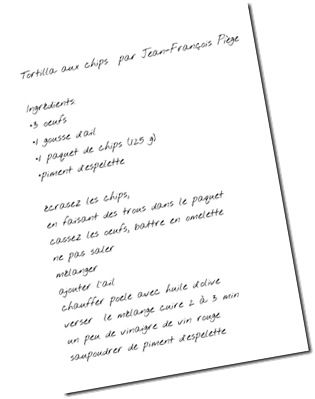 Tortilla aux chips par Jean-François Piège
Ingrédients
•3 oeufs
•1 gousse d'ail
•1 paquet de chips (125 g)
•piment d'espelette
écrasez les chips,
en faisant des trous dans le paquet
cassez les oeufs, battre en omelette
ne pas saler
mélanger
ajouter l'ail
chauffer poele avec huile d'olive
verser le mélange cuire 2 à 3 min
un peu de vinaigre de vin rouge
saupoudrer de piment d'espelette